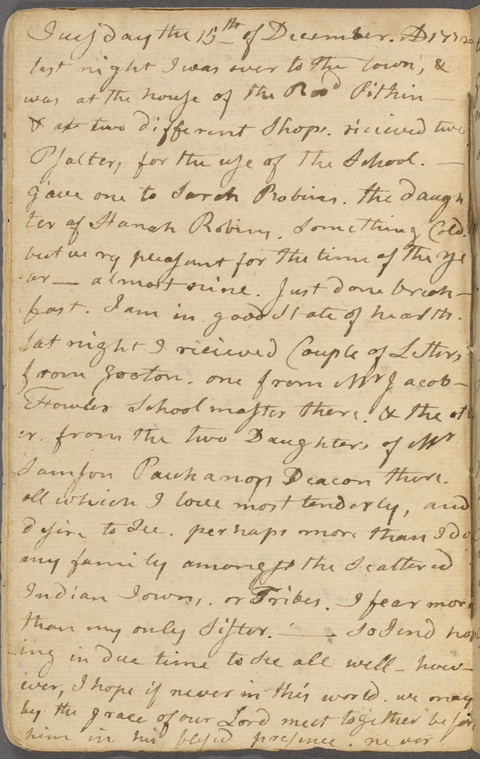 Tuesday the 15th of December. AD 1772
last night I was over to the town, &
was at the house of the Revd Pitkin —
& at two different Shops. ricieved two
Psalter, for the use of the School. —
gave one to Sarah Robins. the daugh
ter of Hanah Robins. Something Cold.
but very pleasant for the time of the ye
ar — almost nine. Just done break-
fast. I am in good State of hearth.
last night I ricieved Couple of Letters
from Groton. one from Mr Jacob
Fowler School master there. & the oth
er. from the two Daughters of Mr
Samson Pauhanop Deacon there.
all which I love most tenderly, and
desire to See. perhaps more than I do
my family amongst the Scattered
Indian Towns, or Tribes. I fear more
than my only Sister. — So I end hop
ing in due time to See all well — how-
ever, I hope if never in this world. we may
by the grace of our Lord meet together before
him in his blessed presence. never